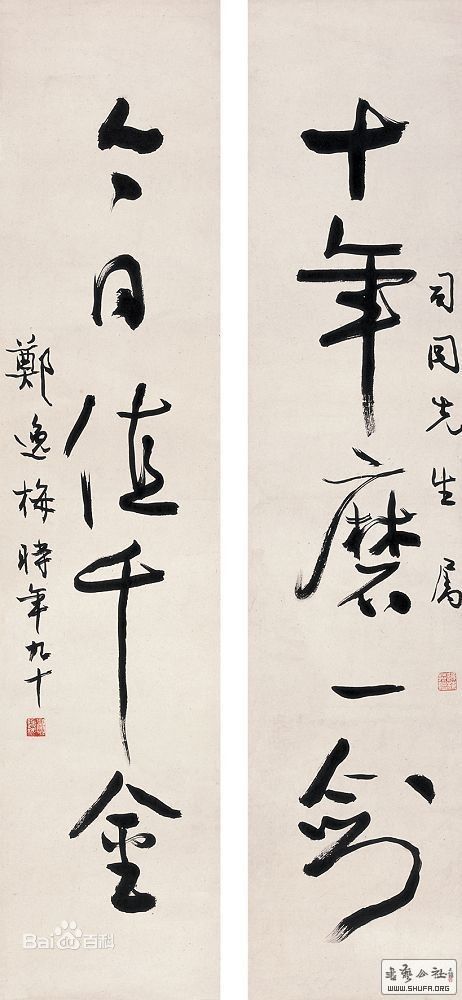 司同先生属
十年磨一剑
今日值千金
鄭逸梅時年九十
Bai百科
书艺公社
WWW.SHUFA.ORG